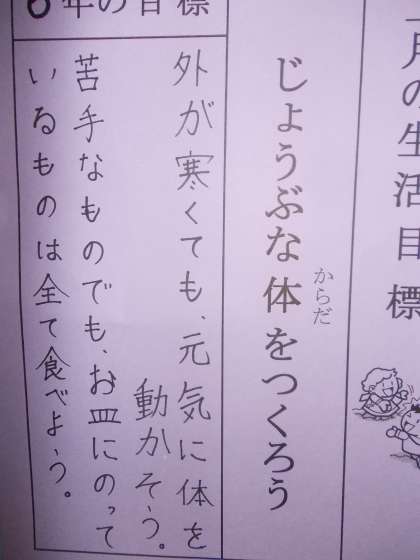 月の生活目標
じょうぶな体をつくろう
からだ
6年の目標
外が寒くても、元気に体を
動かそう。
苦手なものでも、お皿にのって
いるものは全て食べよう。